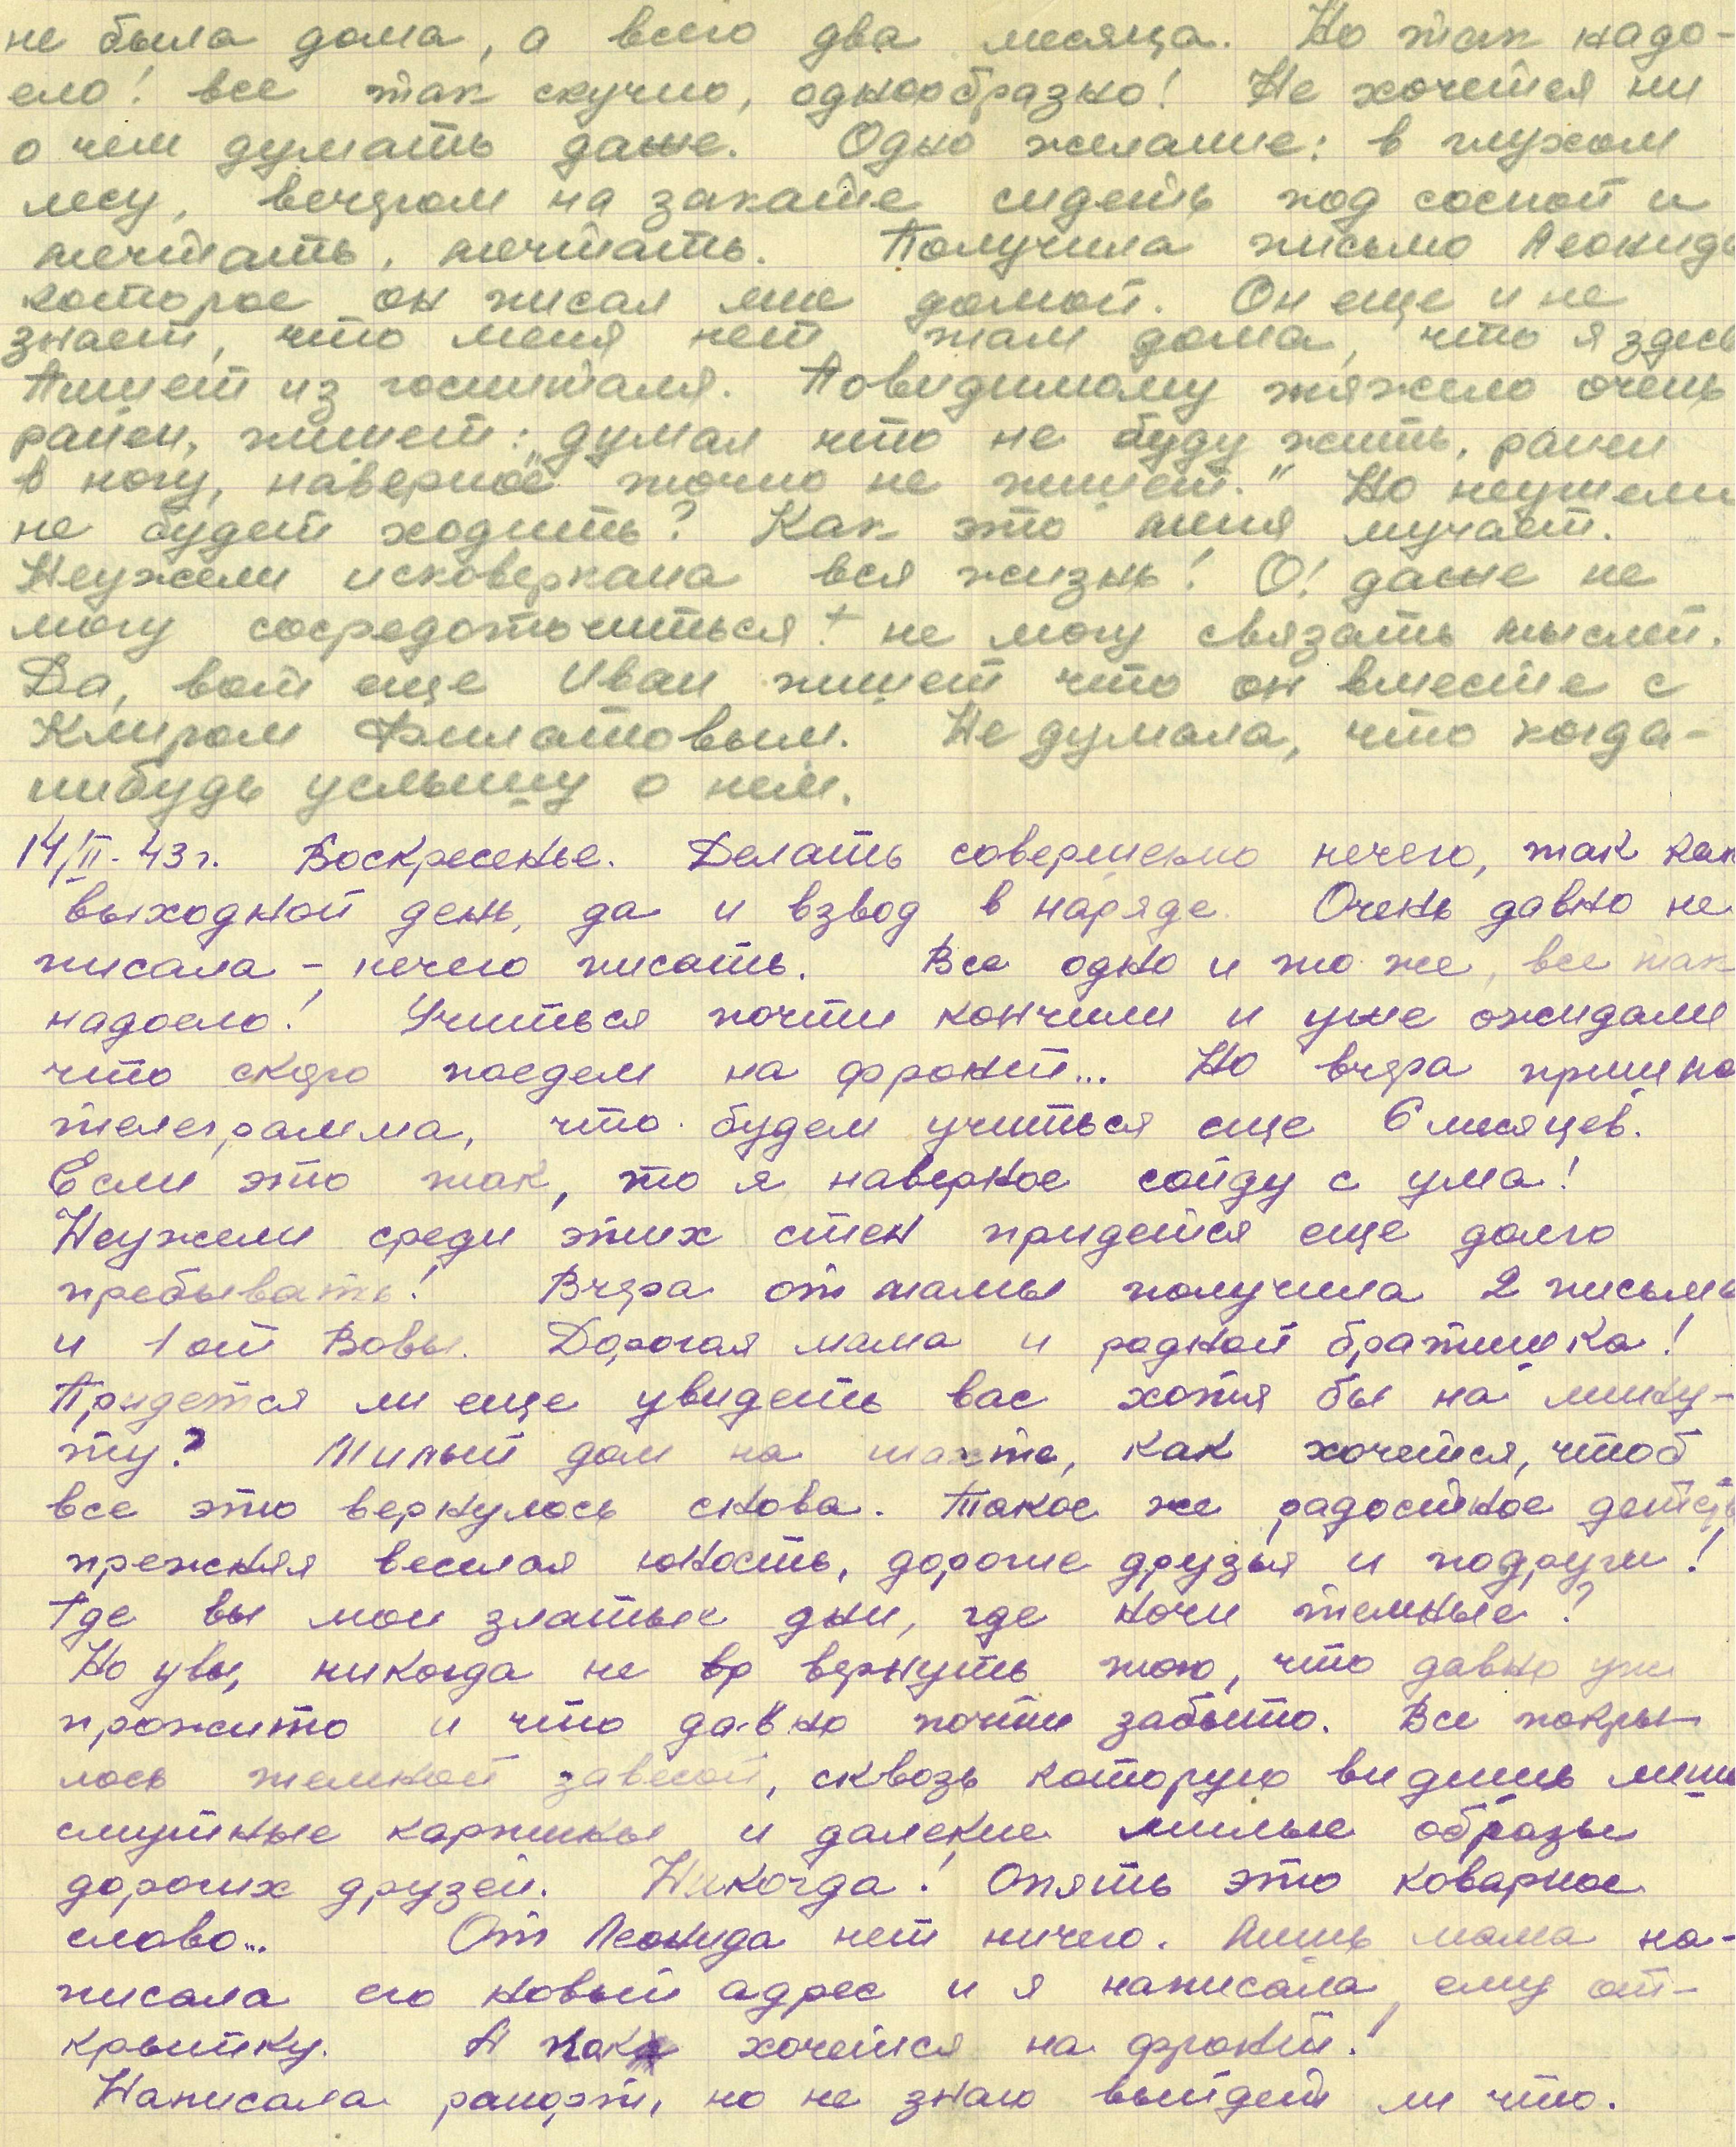 не была дома, а всего два месяца. Но так надо-
ело! все так скучно, однообразно! Не хочется ни
о чем думать даже. Одно желание: в глухом
лесу, вечером на закате сидеть под сосной и
мечтать, мечтать. Получила письмо Леонида
которое он писал мне домой. Он еще и не
знает, что меня нет там дома, что я здесь
Пишет из госпиталя. Повидимому тяжело очень
ранен, пишет: „думал что не буду жить, ранен
в ногу, наверное точно не пишет." Но неужели
не будет ходить? Как это меня мучает.
Неужели исковеркана вся жизнь! О! даже не
могу сосредоточиться + не могу связать мыслей.
Да, вот еще Иван пишет что он вместе с
Клиром Филатовым. Не думала, что когда-
нибудь услышу о нем.
14/II-43г. Воскресенье. Делать совершенно нечего, так как
выходной день, да и взвод в наряде. Очень давно не
писала - нечего писать. Все одно и то же, все так
надоело! Учиться почти кончили и уже ожидали
что скоро поедем на фронт... Но вчера пришла
телеграмма, что будем учиться еще 6 месяцев.
Если это так, то я наверное сойду с ума!
Неужели среди этих стен придется еще долго
пребывать! Вчера от мамы получила 2 письма
и 1 от Вовы. Дорогая мама и родной братишка!
Придется ли еще увидеть вас хотя бы на мину-
ту? Милый дом на шахте, как хочется, чтоб
все это вернулось снова. Такое же радостное детство
прежняя веселая юность, дорогие друзья и подруги!
Где вы мои златые дни, где ночи темные?
Но увы, никогда не вр вернуть того, что давно уж
прожито и что давно почти забыто. Все покры-
лось темной завесой, сквозь которую видишь лишь
смутные картины и далекие милые образы
дорогих друзей. Никогда! Опять это коварное
слово... От Леонида нет ничего. Лишь мама на-
писала его новый адрес и я написала ему от-
крытку. А как хочется на фронт!
Написала рапорт, но не знаю выйдет ли что.